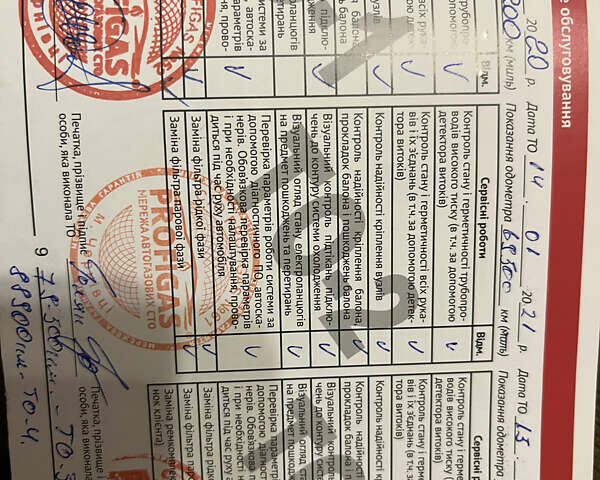 е обслуговування
20 20 р.
км (милі)
Відм.
Дата ТО 14 . 01 2021 р.
Показання одометра 68500 км (милі)
Сервісні роботи
Відм.
Контроль стану і герметичності трубопро-
водів високого тиску (в т.ч. за допомогою
детектора витоків)
Контроль стану і герметичності всіх рука-
вів і їх з'єднань (в т.ч. за допомогою детек-
тора витоків)
Контроль надійності кріплення вузлів
Контроль надійності кріплення балона,
прокладок балона і пошкоджень балона
Візуальний контроль підтікань, підклю-
чень до контуру системи охолодження
Візуальний огляд стану електроланцюгів
на предмет пошкоджень та перетирань
Перевірка параметрів роботи системи за
допомогою діагностичного ПО, автоска-
нерів. Обов'язкова перевірка параметрів
і при необхідності налаштування, прово-
диться під час руху автомобіля
Заміна фільтра рідкої фази
Заміна фільтра парової фази
Печатка, прізвище і підпис
особи, яка виконала ТО
PROFIGAS
МЕРЕЖА АВТОГАЗОВИХ СТО
м. Чернівці
9
78500км. - ТО-3
88900км. - ТО-4.
Дата ТО 15 .
Показання одометра
Сервісні р
Контроль стану і герме
водів високого тиску (
детектора витоків)
Контроль стану і герм
вів і їх з'єднань (в т.ч. з
тора витоків)
Контроль надійності к
Контроль надійності
прокладок балона і п
Візуальний контрол
чень до контуру сис
Візуальний огляд ста
на предмет пошкод
Перевірка параметр
допомогою діагнос
нерів. Обов'язкова
і при необхідності н
диться під час руху а
Заміна фільтра рід
Заміна фільтра пар
Заміна ремкомплек
ної клієнта)
Печатка, прізвище і
особи, яка викона